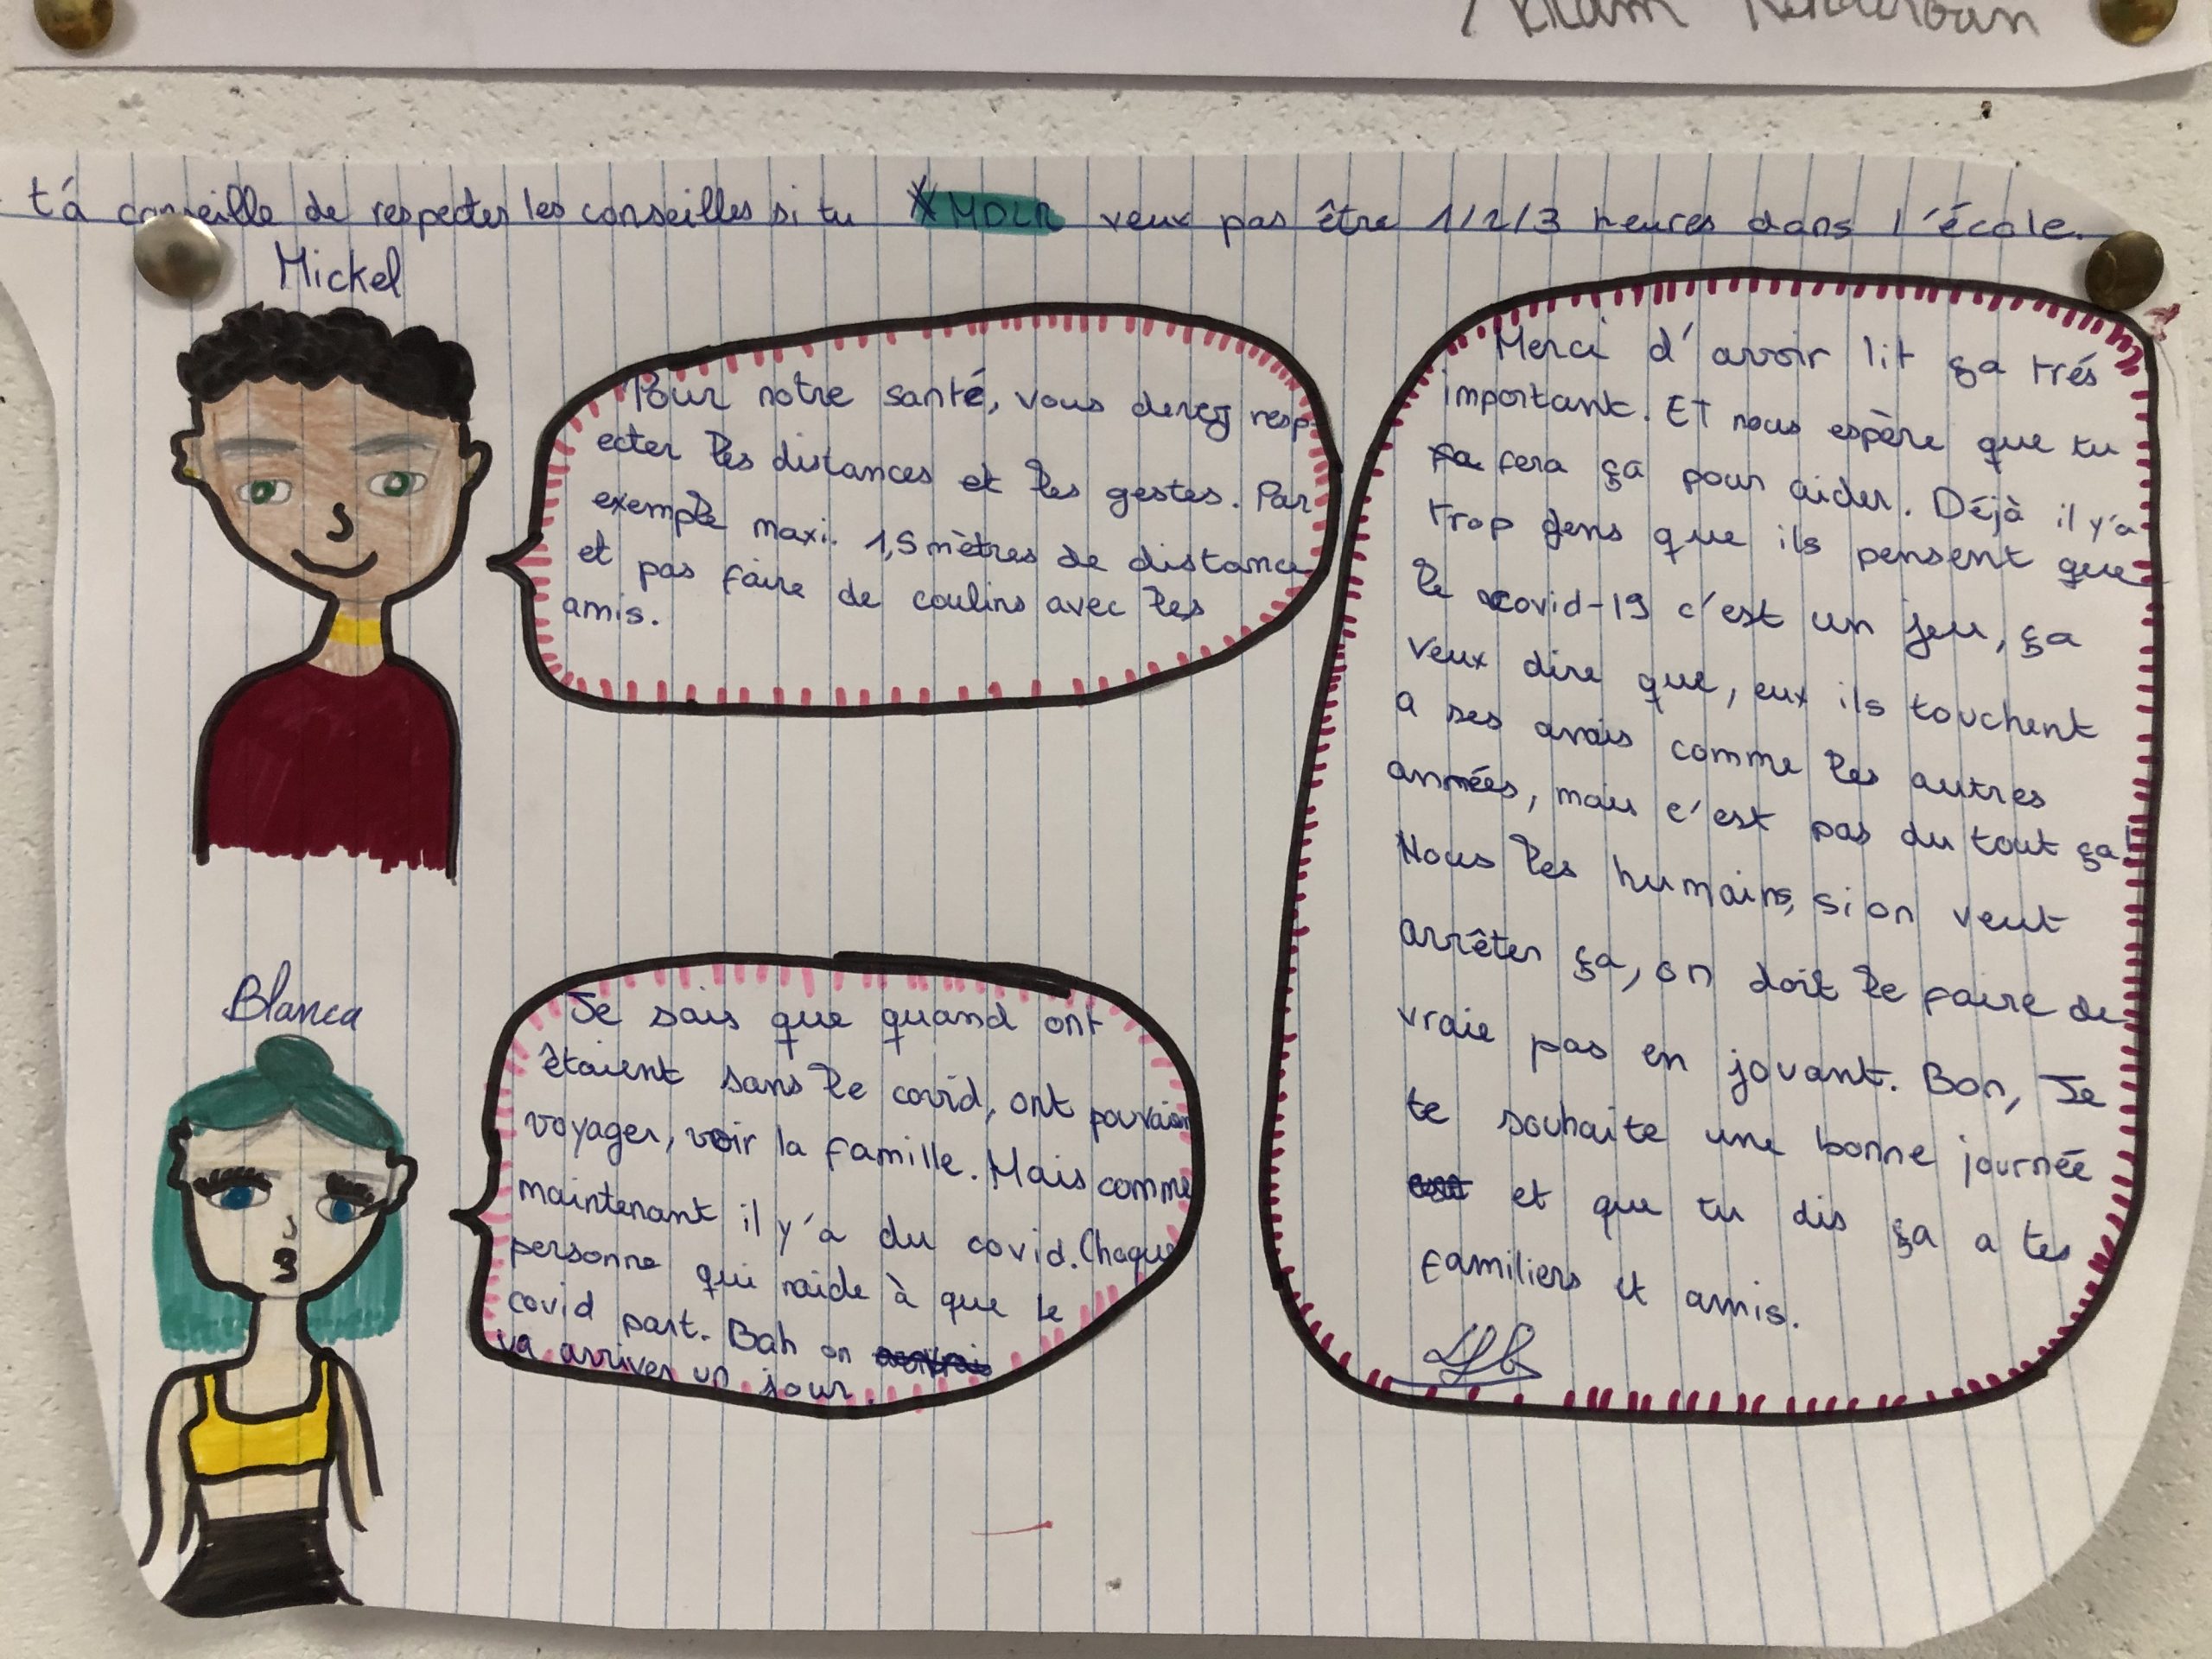 t'á conseille de respecter les conseilles si tu MDLR veux pas être 1/2/3 heures dans l'école.
Mickel
Pour notre santé, vous devez resp
ecter les distances et les gestes. Par
exemple maxi. 1,5 mètres de distance
et pas faire de coulins avec les
amis.
Blanca
Je sais que quand ont
êtaient sans le covid, ont pouvaion
voyager, voir la famille. Mais comme
maintenant il y'a du covid. Chaque
personne qui naide à que le
covid part. Bah on
va arriver un jour.
Merci d'avoir lit ça trés
important. Et nous espère que tu
fera ça pour aider. Déjà il y'a
trop gens que ils pensent que
le covid-19 c'est un jeu, ça
veux dire que, eux ils touchent
a ses amais comme les autres
années, mais c'est pas du tout ça!
Nous les humains, si on veut
arrêter ça, on doit le faire de
vraie pas en jouant. Bon, Je
te souhaite une bonne journée
et que tu dis ça a tes
familiers et amis.